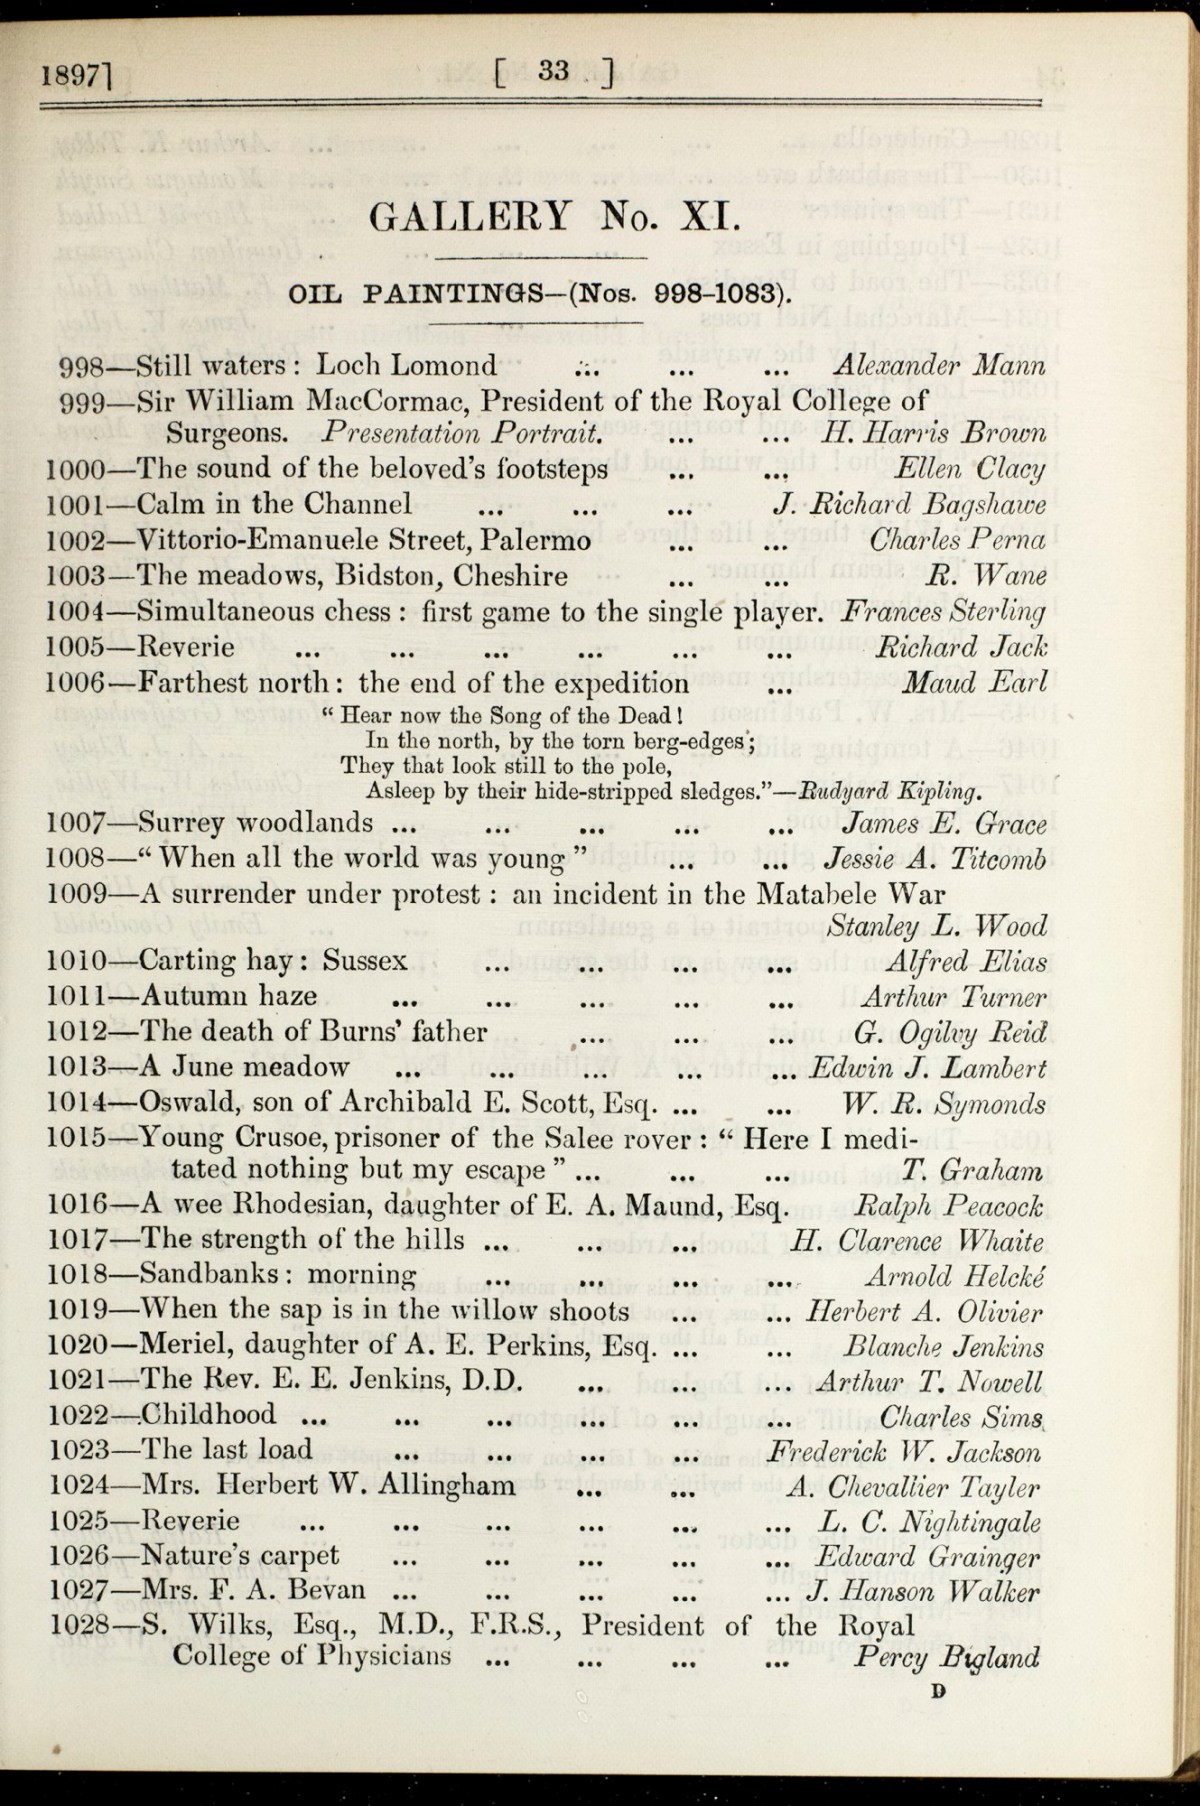 1897]
[ 33 ]
GALLERY No. XI.
OIL PAINTINGS—(Nos. 998-1083).
998—Still waters : Loch Lomond ... ... ... Alexander Mann
999—Sir William MacCormac, President of the Royal College of
Surgeons. Presentation Portrait. ... ... H. Harris Brown
1000—The sound of the beloved's footsteps ... ... Ellen Clacy
1001—Calm in the Channel ... ... ... J. Richard Bagshawe
1002—Vittorio-Emanuele Street, Palermo ... ... Charles Perna
1003—The meadows, Bidston, Cheshire ... ... R. Wane
1004—Simultaneous chess : first game to the single player. Frances Sterling
1005—Reverie ... ... ... ... ... ... Richard Jack
1006—Farthest north : the end of the expedition ... Maud Earl
“ Hear now the Song of the Dead !
In the north, by the torn berg-edges ;
They that look still to the pole,
Asleep by their hide-stripped sledges.”—Rudyard Kipling.
1007—Surrey woodlands ... ... ... ... ... James E. Grace
1008—“ When all the world was young ” ... ... Jessie A. Titcomb
1009—A surrender under protest : an incident in the Matabele War
Stanley L. Wood
1010—Carting hay : Sussex ... ... ... ... Alfred Elias
1011—Autumn haze ... ... ... ... ... Arthur Turner
1012—The death of Burns' father ... ... ... G. Ogilvy Reid
1013—A June meadow ... ... ... ... ... Edwin J. Lambert
1014—Oswald, son of Archibald E. Scott, Esq. ... ... W. R. Symonds
1015—Young Crusoe, prisoner of the Salee rover : “ Here I medi-
tated nothing but my escape ” ... ... ... T. Graham
1016—A wee Rhodesian, daughter of E. A. Maund, Esq. Ralph Peacock
1017—The strength of the hills ... ... ... H. Clarence Whaite
1018—Sandbanks : morning ... ... ... ... Arnold Helcké
1019—When the sap is in the willow shoots ... ... Herbert A. Olivier
1020—Meriel, daughter of A. E. Perkins, Esq. ... ... Blanche Jenkins
1021—The Rev. E. E. Jenkins, D.D. ... ... ... Arthur T. Nowell
1022—Childhood ... ... ... ... ... ... Charles Sims
1023—The last load ... ... ... ... Frederick W. Jackson
1024—Mrs. Herbert W. Allingham ... ... A. Chevallier Tayler
1025—Reverie ... ... ... ... ... ... L. C. Nightingale
1026—Nature's carpet ... ... ... ... ... Edward Grainger
1027—Mrs. F. A. Bevan ... ... ... ... ... J. Hanson Walker
1028—S. Wilks, Esq., M.D., F.R.S., President of the Royal
College of Physicians ... ... ... ... Percy Bigland
D